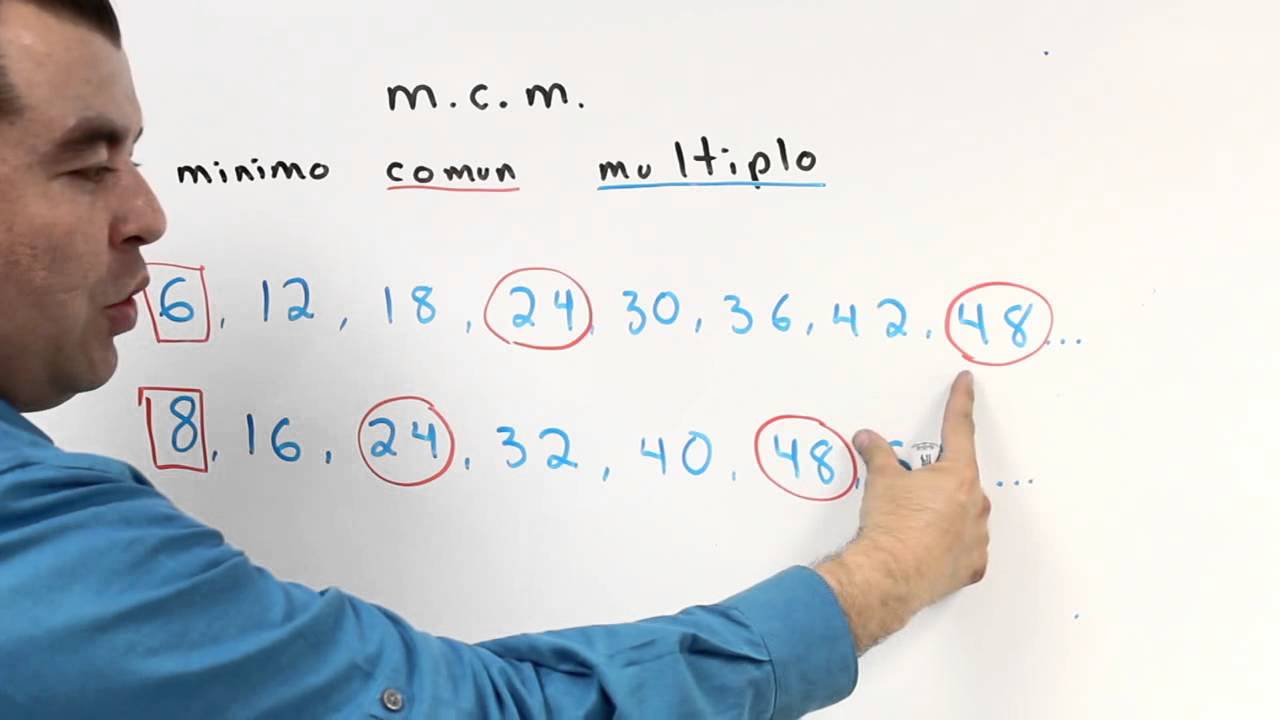 m.c.m.
minimo comun multiplo
6, 12, 18, 24, 30, 36, 42, 48...
8, 16, 24, 32, 40, 48, ...